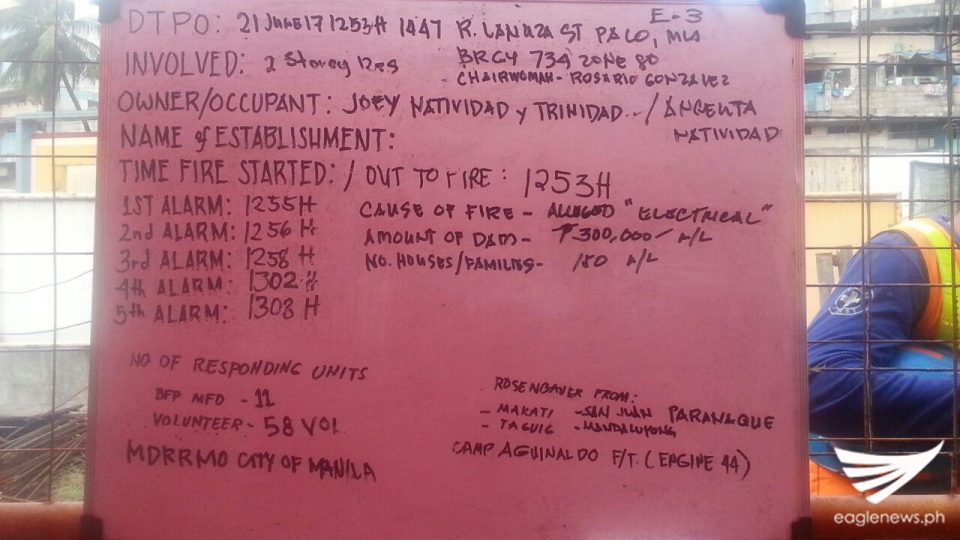 E-3
DTPO: 21 JUNE 17 1253H 1447 R. LANUZA ST PACO, MLA
INVOLVED: 2 Storey Res
BRGY 734 ZONE 80
CHAIRWOMAN - ROSARIO GONZALEZ
OWNER/OCCUPANT: JOEY NATIVIDAD y TRINIDAD / ANGELITA NATIVIDAD
NAME of ESTABLISHMENT:
TIME FIRE STARTED: / OUT TO FIRE: 1253H
1ST ALARM: 1255H
2nd ALARM: 1256 H
3rd ALARM: 1258 H
4th ALARM: 1302 H
5th ALARM: 1308 H
CAUSE OF FIRE - ALLEGED "ELECTRICAL"
AMOUNT OF DMS - ₱300,000
NO. HOUSES/FAMILIES- 150
NO OF RESPONDING UNITS
BFP MFD - 11
VOLUNTEER - 58 VOL
MDRRMO CITY OF MANILA
ROSENBAUER FROM:
- MAKATI - SAN JUAN PARANAQUE
- TAGUIG - MANDALUYONG
CAMP AGUINALDO F/T. (ENGINE 44)
eaglenews.ph